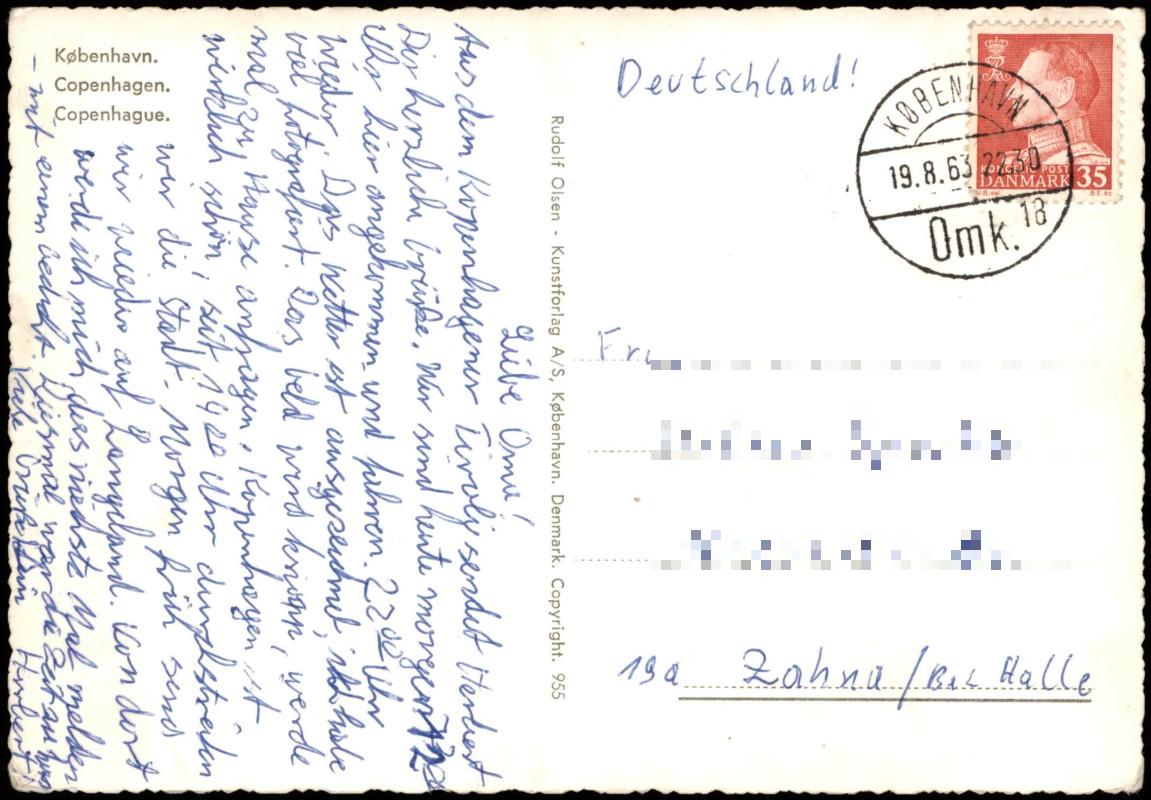 København.
Copenhagen.
Copenhague.
Deutschland!
KØBENHAVN
19.8.63 22.30
Omk. 18
KONGELIG POST
DANMARK 35
Rudolf Olsen - Kunstforlag A/S, København. Denmark. Copyright. 955
19a Zahna / Bez Halle
Liebe Omi!
Aus dem Kopenhagener Tivoli sendet Herbert
Dir herzliche Grüße. Wir sind heute morgen
Uhr hier angekommen und fahren 22 00 Uhr
wieder. Das Wetter ist ausgezeichnet, ich habe
viel fotografiert. Das Geld wird knapp, werde
mal zu Hause anfragen. Kopenhagen ist
wirklich schön, seit Uhr durchstreifen
wir die Stadt. Morgen früh sind
wir wieder auf Langeland. Von dort
werde ich mich das nächste Mal melden
- mit einem Bericht. Diesmal war die Zeit zu
Viele Grüße Dein Herbert!